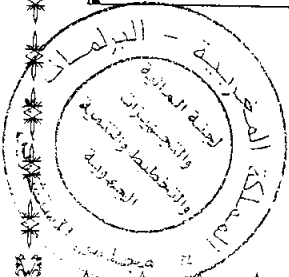 المملكة المغربية - البرلمان
لجنة المالية
والتجهيزات
والتخطيط والتنمية
الجهوية
مجلس المستشارين